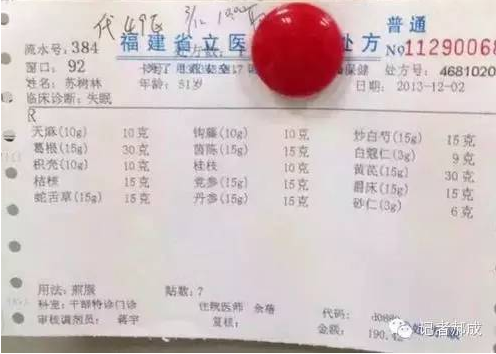 代49E
普通
流水号: 384
福建省立医 处方 No11290068
窗口: 92
保健 处方号: 4681020
姓名: 苏树林 年龄: 51岁 日期: 2013-12-02
临床诊断: 失眠
R
天麻(10g) 10克 钩藤(10g) 10克 炒白芍(15g) 15克
葛根(15g) 30克 茵陈(15g) 15克 白蔻仁(3g) 9克
枳壳(10g) 10克 桂枝 10克 黄芪(15g) 30克
桔梗 15克 党参(15g) 15克 爵床(15g) 15克
蛇舌草(15g) 15克 丹参(15g) 15克 砂仁(3g) 6克
用法: 煎服 贴数: 7
科室: 干部特诊门诊 住院医师 余蓓 代码:
审核调剂员: 蒋宇 复核: 金额: 190.4
记者郝成